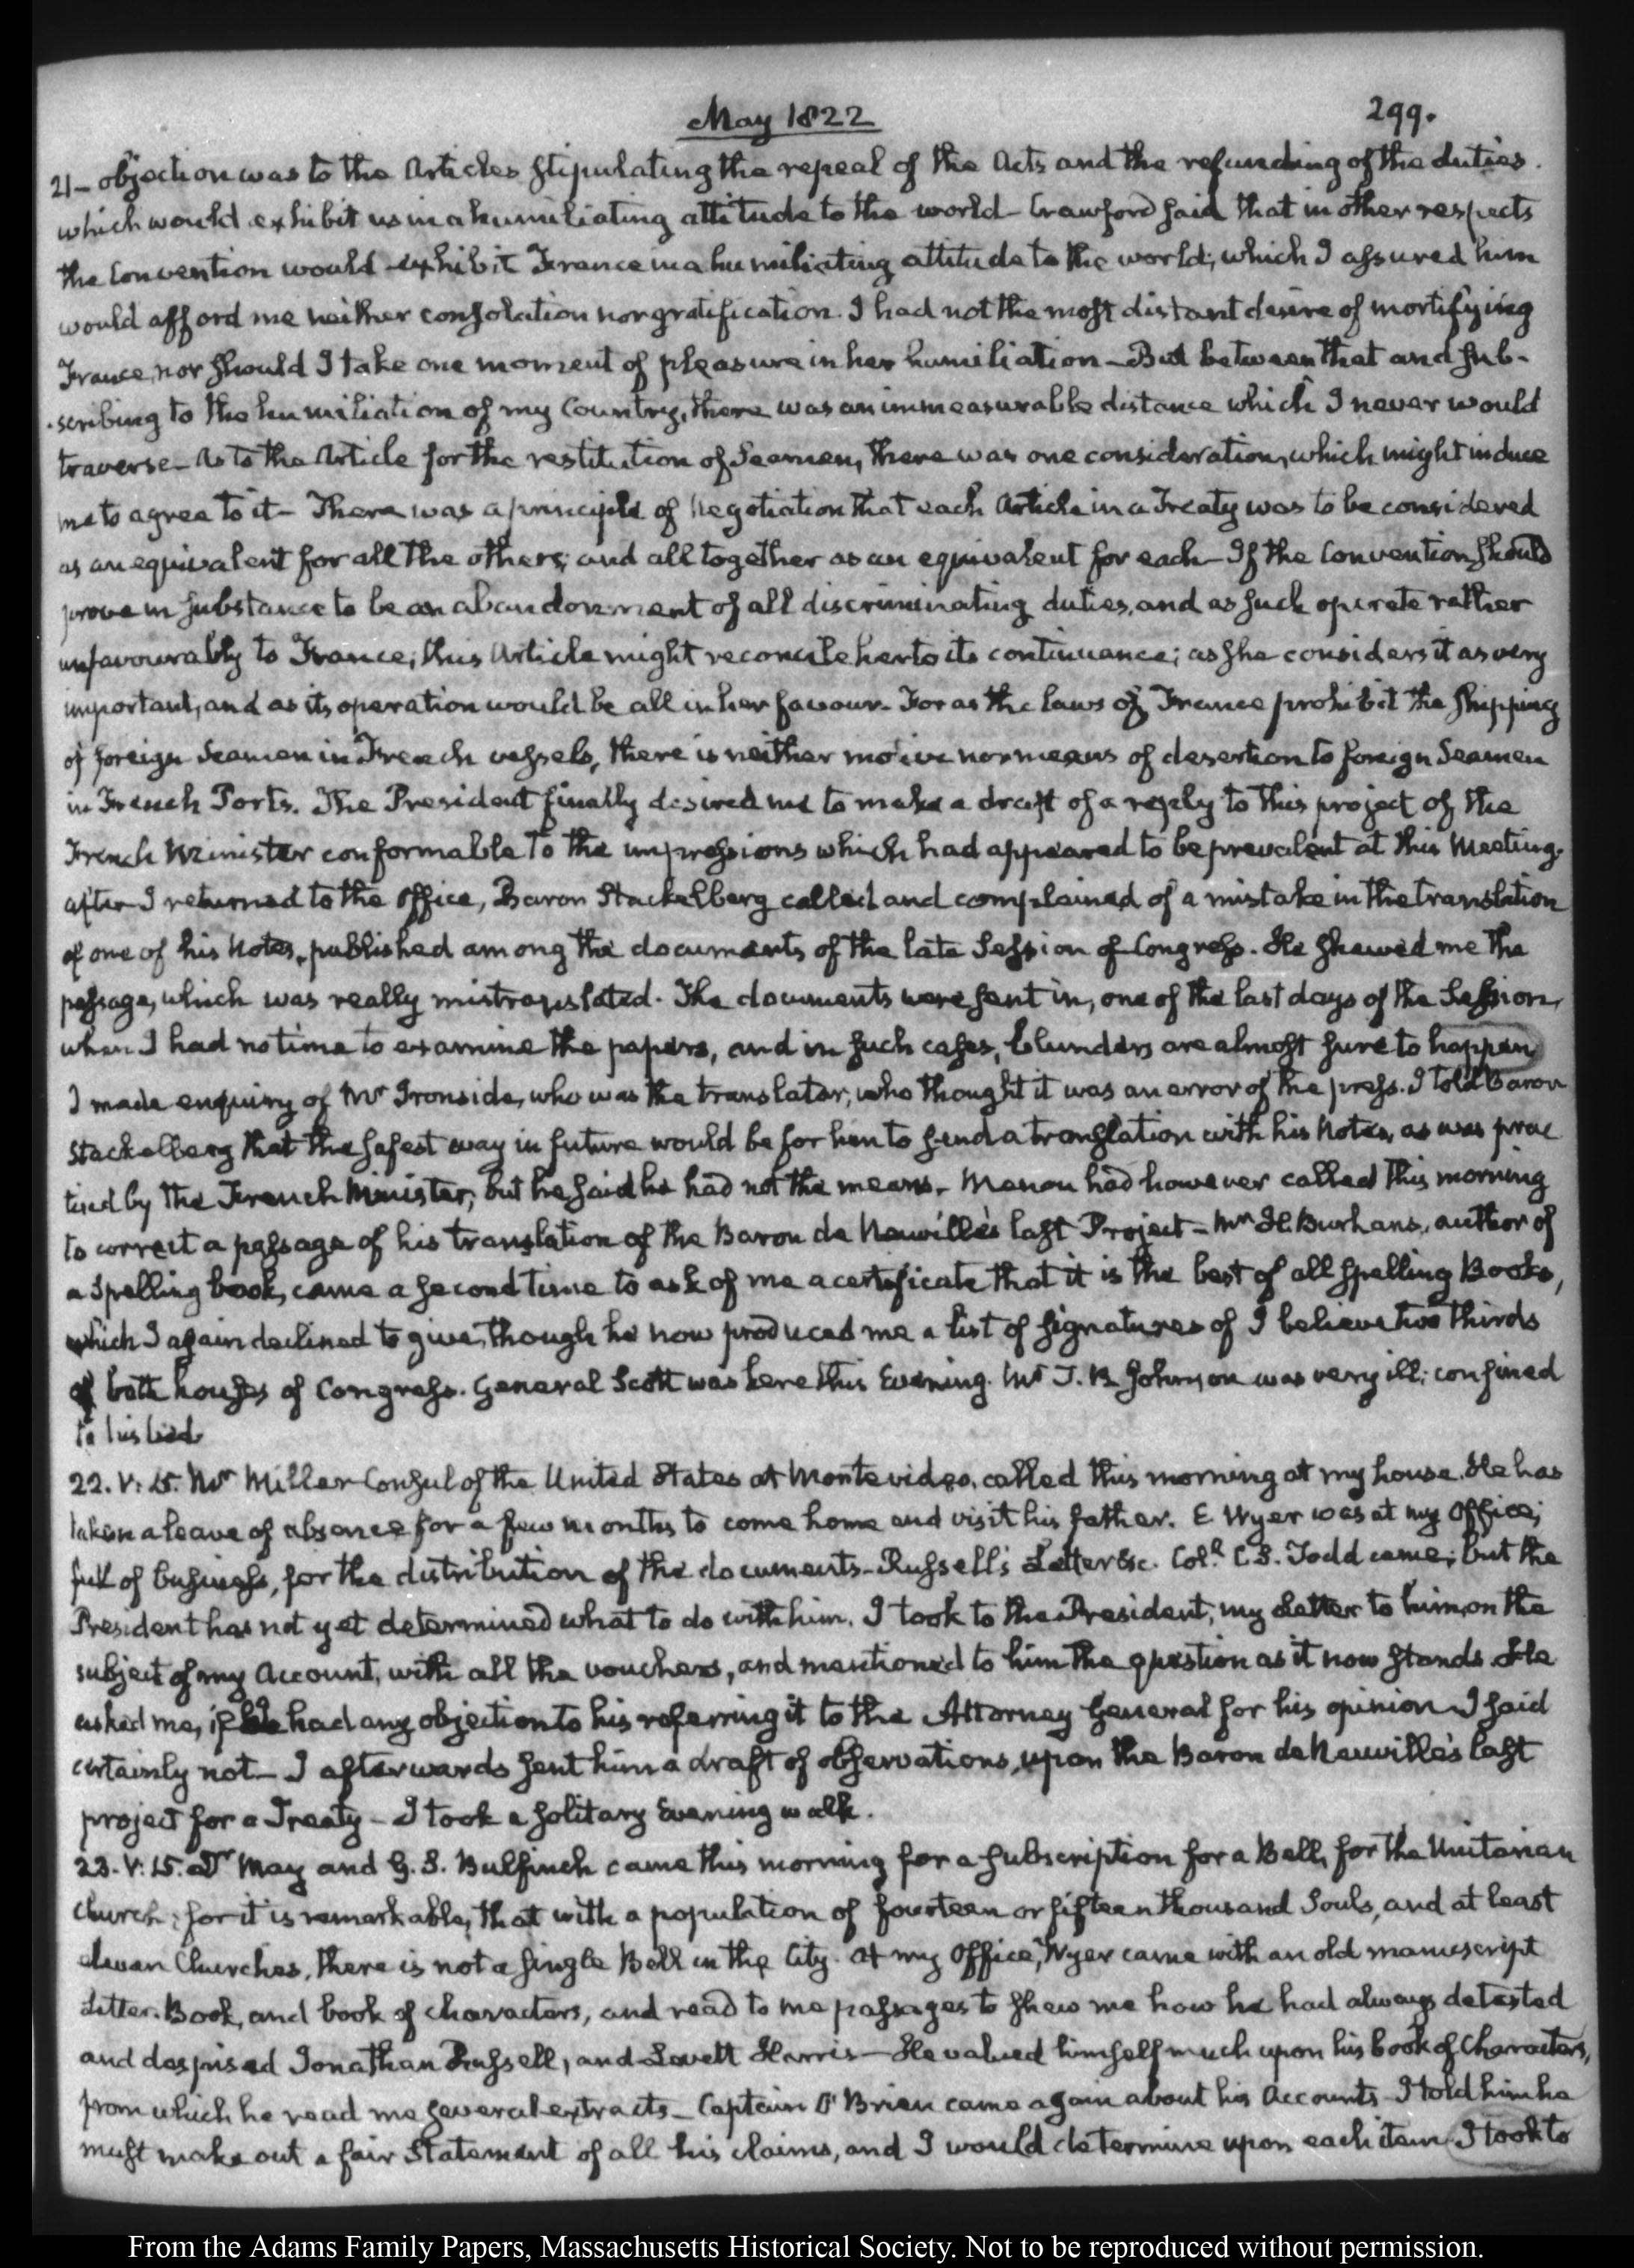 May 1822
299.
21- objection was to the Articles stipulating the repeal of the Acts and the refunding of the duties.
which would exhibit us in a humiliating attitude to the world- Crawford said that in other respects
the Convention would exhibit France in a humiliating attitude to the world; which I assured him
would afford me neither consolation nor gratification. I had not the most distant desire of mortifying
France, nor should I take one moment of pleasure in her humiliation- But between that and sub-
-scribing to the humiliation of my Country, there was an immeasurable distance which I never would
traverse- As to the Article for the restitution of Seamen, there was one consideration, which might induce
me to agree to it- There was a principle of Negotiation that each Article in a Treaty was to be considered
as an equivalent for all the others; and all together as an equivalent for each- If the Convention should
prove in substance to be an abandonment of all discriminating duties, and as such operate rather
unfavourably to France; this Article might reconcile her to its continuance; as she considers it as very
important, and as its operation would be all in her favour- For as the laws of France prohibit the shipping
of foreign Seamen in French vessels, there is neither motive nor means of desertion to foreign Seamen
in French Ports. The President finally desired me to make a draft of a reply to this project of the
French Minister conformable to the impressions which had appeared to be prevalent at this Meeting.
after I returned to the Office, Baron Stackelberg called and complained of a mistake in the translation
of one of his Notes, published among the documents of the late Session of Congress. He shewed me the
passage, which was really mistranslated. The documents were sent in, one of the last days of the Session,
when I had no time to examine the papers, and in such cases, blunders are almost sure to happen
I made enquiry of Mr Ironside, who was the translator, who thought it was an error of the press. I told Baron
Stackelberg that the safest way in future would be for him to send a translation with his Notes, as was prac
tised by the French Minister; but he said he had not the means- Menou had however called this morning
to correct a passage of his translation of the Baron de Neuville's last Project- Mr H. Burhans, author of
a Spelling book, came a second time to ask of me a certificate that it is the best of all spelling Books,
which I again declined to give, though he now produced me a list of signatures of I believe two thirds
of both houses of Congress. General Scott was here this Evening. Mr T. B. Johnson was very ill; confined
to his bed
22. V:15. Mr Miller Consul of the United States at Montevideo, called this morning at my house. He has
taken a leave of absence for a few months to come home and visit his father. E. Wyer was at my Office;
full of business, for the distribution of the documents- Russell's Letter &c. Coll C. S. Todd came; but the
President has not yet determined what to do with him. I took to the President, my Letter to him, on the
subject of my Account, with all the vouchers, and mentioned to him the question as it now stands. He
asked me, if I had any objection to his referring it to the Attorney General for his opinion I said
certainly not- I afterwards sent him a draft of observations, upon the Baron de Neuville's last
project for a Treaty- I took a solitary Evening walk.
23. V:15. Dr May and G. S. Bulfinch came this morning for a subscription for a Bell, for the Unitarian
Church; for it is remarkable, that with a population of fourteen or fifteen thousand Souls, and at least
eleven Churches, there is not a single Bell in the City. At my Office, Wyer came with an old manuscript
Letter-Book, and book of characters, and read to me passages to shew me how he had always detested
and despised Jonathan Russell, and Levett Harris- He valued himself much upon his book of Characters,
from which he read me several extracts- Captain O'Brien came again about his Accounts- I told him he
must make out a fair Statement of all his claims, and I would determine upon each item. I took to
From the Adams Family Papers, Massachusetts Historical Society. Not to be reproduced without permission.